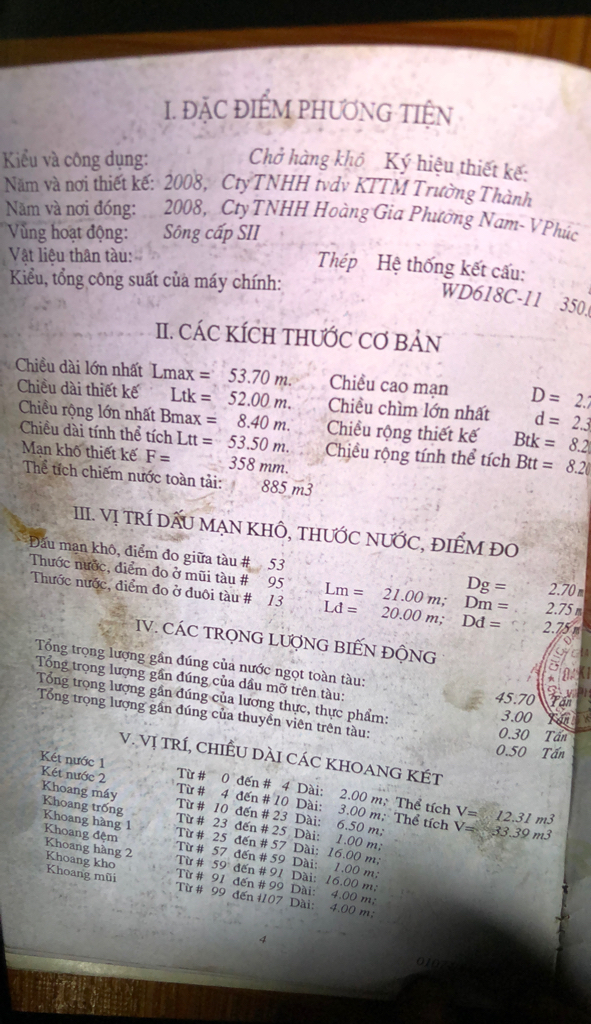 I. ĐẶC ĐIỂM PHƯƠNG TIỆN
Kiểu và công dụng: Chở hàng khô Ký hiệu thiết kế:
Năm và nơi thiết kế: 2008, Cty TNHH tvdv KTTM Trường Thành
Năm và nơi đóng: 2008, Cty TNHH Hoàng Gia Phương Nam- VPhúc
Vùng hoạt động: Sông cấp SII
Vật liệu thân tàu: Thép Hệ thống kết cấu:
Kiểu, tổng công suất của máy chính: WD618C-11 350.
II. CÁC KÍCH THƯỚC CƠ BẢN
Chiều dài lớn nhất Lmax = 53.70 m. Chiều cao mạn D = 2.7
Chiều dài thiết kế Ltk = 52.00 m. Chiều chìm lớn nhất d = 2.3
Chiều rộng lớn nhất Bmax = 8.40 m. Chiều rộng thiết kế Btk = 8.20
Chiều dài tính thể tích Ltt = 53.50 m. Chiều rộng tính thể tích Btt = 8.20
Mạn khô thiết kế F = 358 mm.
Thể tích chiếm nước toàn tải: 885 m3
III. VỊ TRÍ DẤU MẠN KHÔ, THƯỚC NƯỚC, ĐIỂM ĐO
Dấu mạn khô, điểm đo giữa tàu # 53 Dg = 2.70 m
Thước nước, điểm đo ở mũi tàu # 95 Lm = 21.00 m; Dm = 2.75 m
Thước nước, điểm đo ở đuôi tàu # 13 Ld = 20.00 m; Dd = 2.75 m
IV. CÁC TRỌNG LƯỢNG BIẾN ĐỘNG
Tổng trọng lượng gần đúng của nước ngọt toàn tàu: 45.70 Tấn
Tổng trọng lượng gần đúng của dầu mỡ trên tàu: 3.00 Tấn
Tổng trọng lượng gần đúng của lương thực, thực phẩm: 0.30 Tấn
Tổng trọng lượng gần đúng của thuyền viên trên tàu: 0.50 Tấn
V. VỊ TRÍ, CHIỀU DÀI CÁC KHOANG KÉT
Két nước 1 Từ # 0 đến # 4 Dài: 2.00 m; Thể tích V= 12.31 m3
Két nước 2 Từ # 4 đến # 10 Dài: 3.00 m; Thể tích V= 33.39 m3
Khoang máy Từ # 10 đến # 23 Dài: 6.50 m;
Khoang trống Từ # 23 đến # 25 Dài: 1.00 m;
Khoang hàng 1 Từ # 25 đến # 57 Dài: 16.00 m;
Khoang đệm Từ # 57 đến # 59 Dài: 1.00 m;
Khoang hàng 2 Từ # 59 đến # 91 Dài: 16.00 m;
Khoang kho Từ # 91 đến # 99 Dài: 4.00 m;
Khoang mũi Từ # 99 đến #107 Dài: 4.00 m;
4